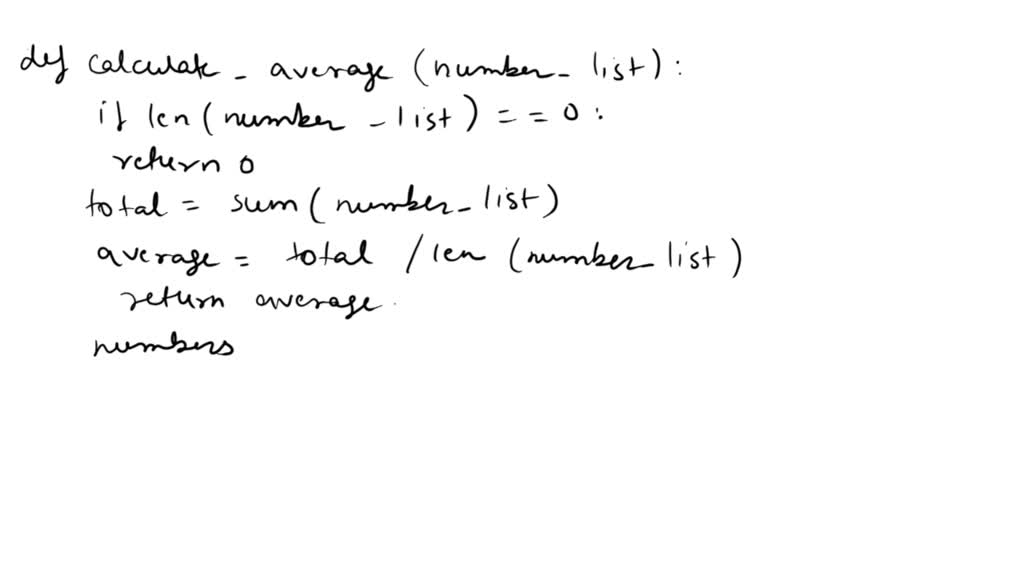 def calculate_average (number_list):
if len(number_list) == 0:
return 0
total = sum(number_list)
average = total / len (number_list)
return average.
numbers